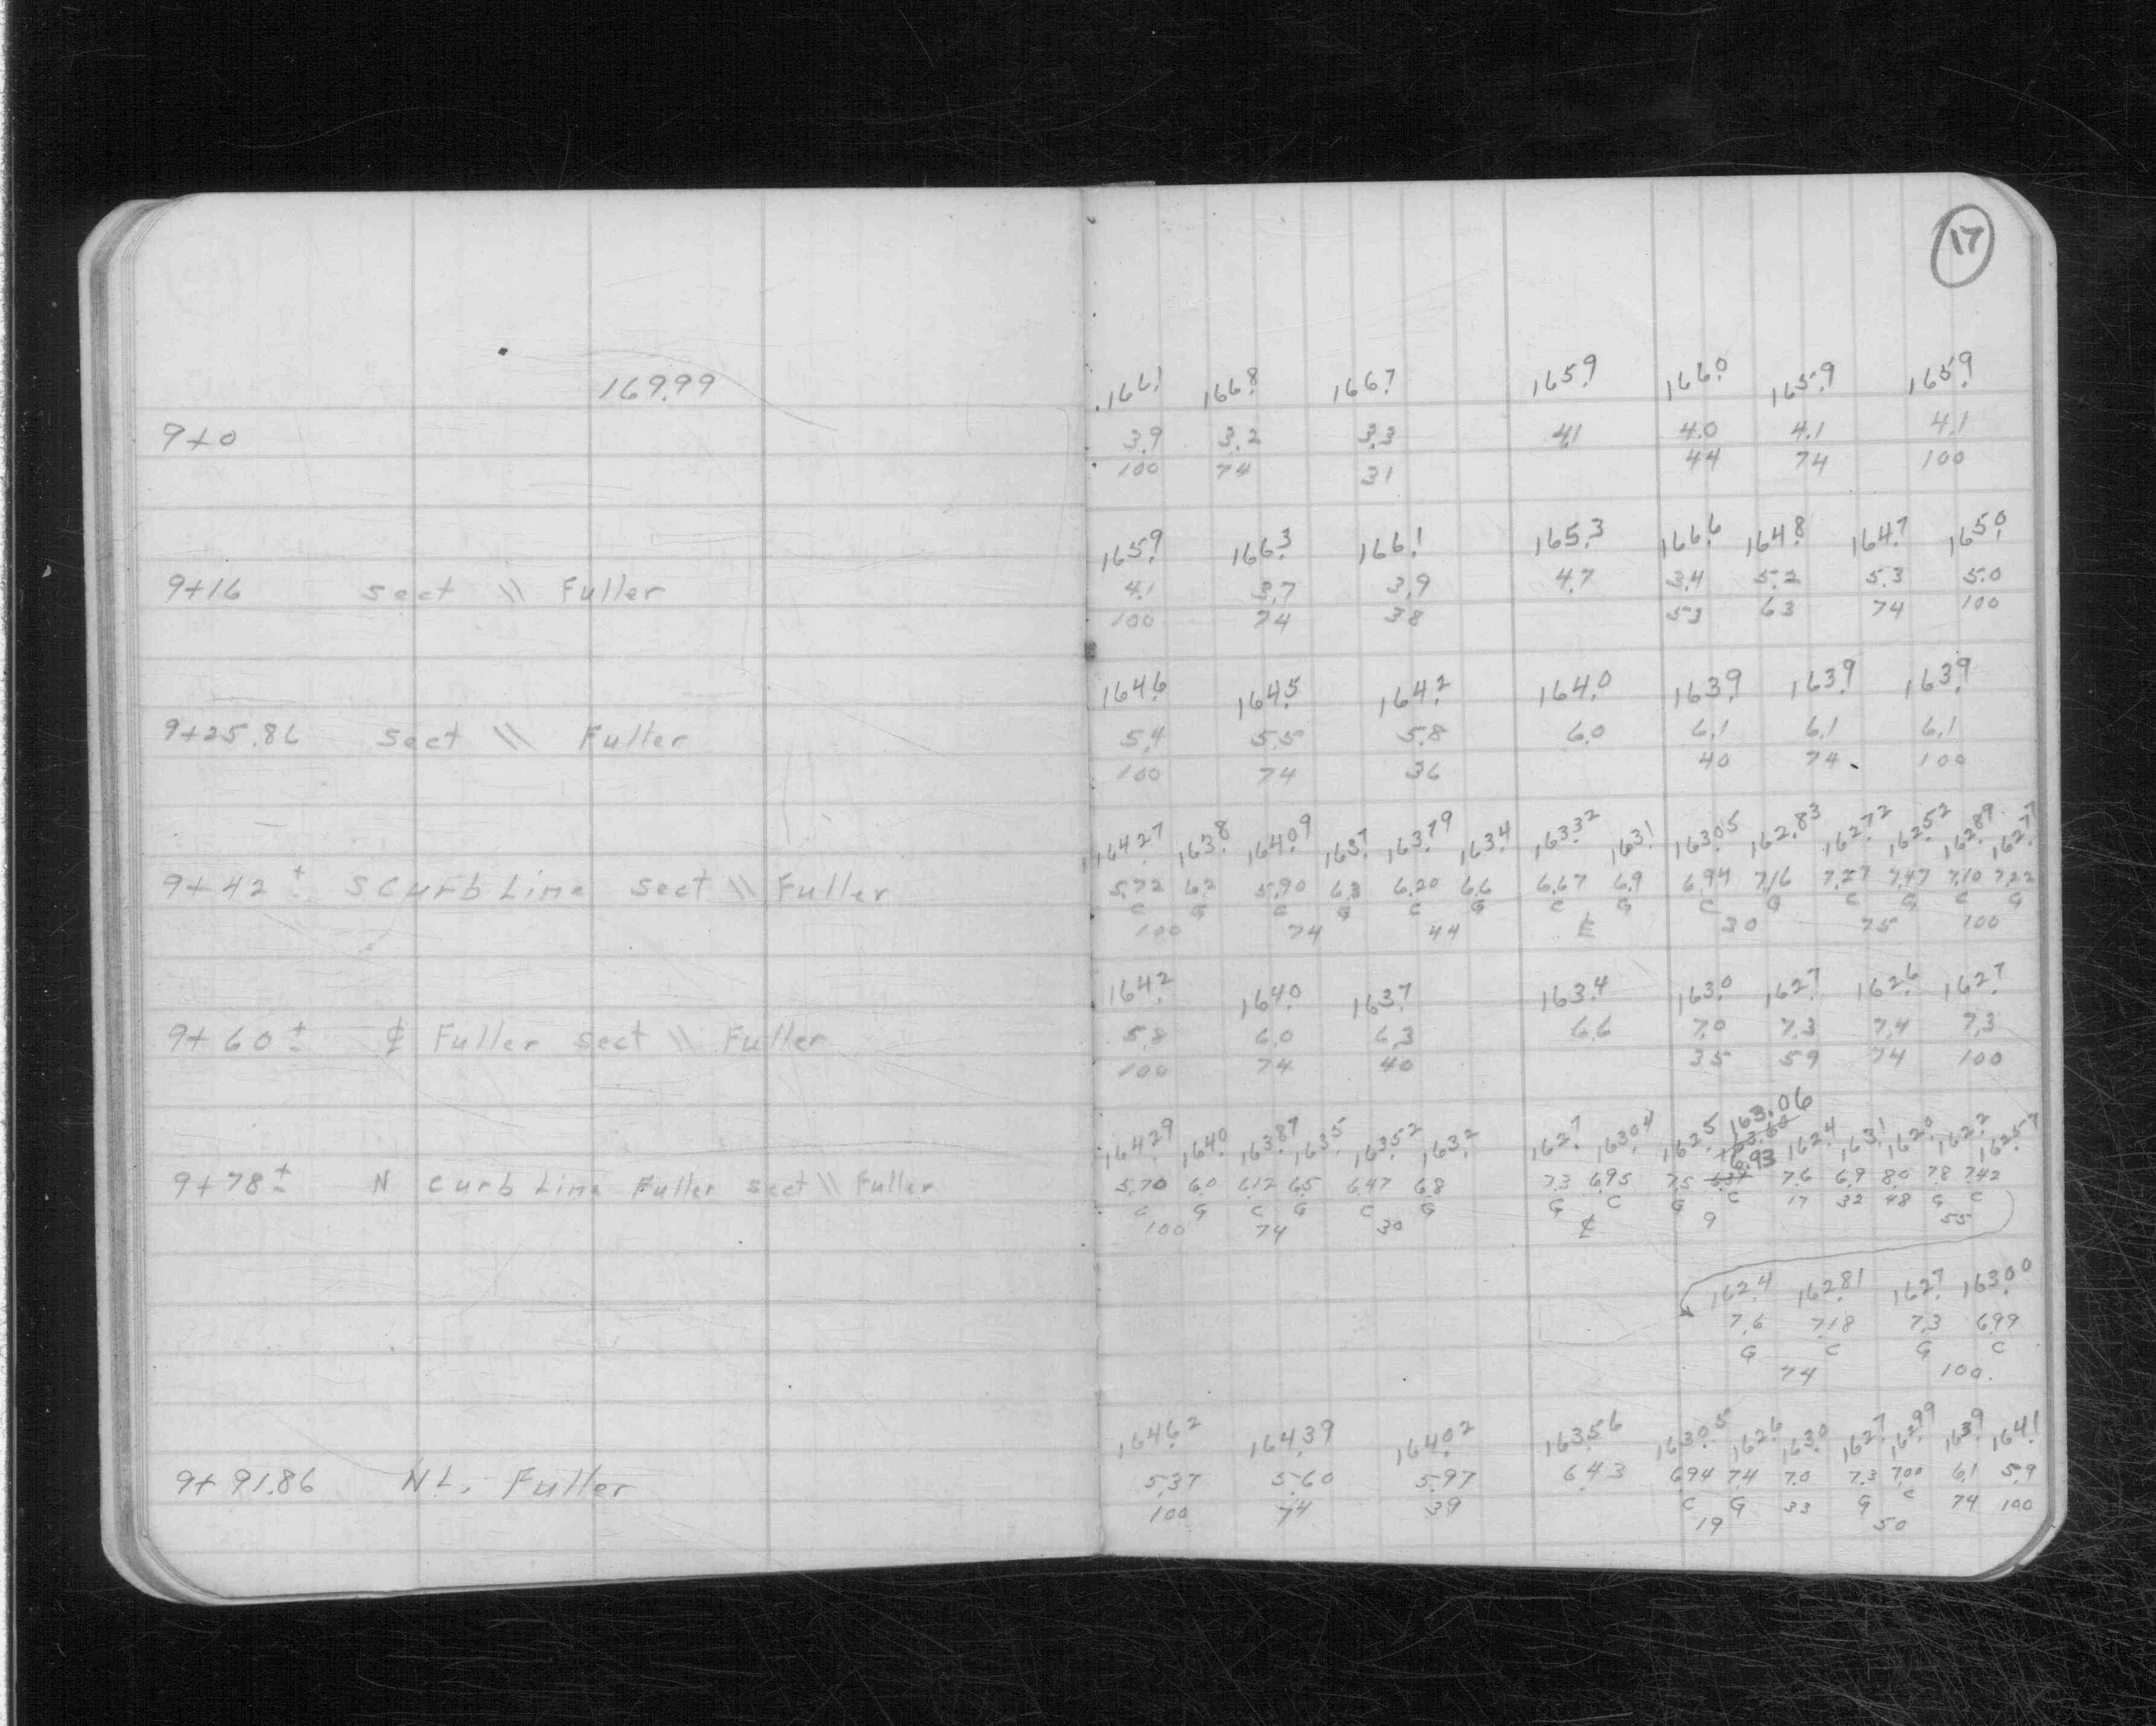 17
169.99 166.1 166.8 166.7 165.9 166.0 165.9 165.9
9+0 3.9 3.2 3.3 4.1 4.0 4.1 4.1
100 74 31 44 74 100
165.9 166.3 166.1 165.3 166.6 164.8 164.7 165.0
9+16 sect \\ Fuller 4.1 3.7 3.9 4.7 3.4 5.2 5.3 5.0
100 74 38 53 63 74 100
164.6 164.5 164.2 164.0 163.9 163.9 163.9
9+25.86 sect \\ Fuller 5.4 5.5 5.8 6.0 6.1 6.1 6.1
100 74 36 40 74 100
164.27 163.8 164.09 163.7 163.79 163.4 163.32 163.1 163.05 162.83 162.72 162.52 162.89 162.77
9+42± S Curb Line sect \\ Fuller 5.72 6.2 5.90 6.3 6.20 6.6 6.67 6.9 6.94 7.16 7.27 7.47 7.10 7.22
C G C G C G C G C G C G C G
100 74 44 ℄ 30 75 100
164.2 164.0 163.7 163.4 163.0 162.7 162.6 162.7
9+60± ℄ Fuller sect \\ Fuller 5.8 6.0 6.3 6.6 7.0 7.3 7.4 7.3
100 74 40 35 59 74 100
163.06
164.29 164.0 163.87 163.5 163.52 163.2 162.7 163.04 162.5 163.60 162.4 163.1 162.0 162.2 162.57
6.93
9+78± N Curb Line Fuller sect \\ Fuller 5.70 6.0 6.12 6.5 6.47 6.8 7.3 6.95 7.5 7.6 6.9 8.0 7.8 7.42
C G C G C G G C G C 17 32 48 G C
100 74 30 ℄ 9 55
162.4 162.81 162.7 163.00
7.6 7.18 7.3 6.99
G C G C
74 100
164.62 164.39 164.02 163.56 163.05 162.6 163.0 162.7 162.99 163.9 164.1
9+91.86 N.L. Fuller 5.37 5.60 5.97 6.43 6.94 7.4 7.0 7.3 7.00 6.1 5.9
100 74 39 C G 33 G C 74 100
19 50